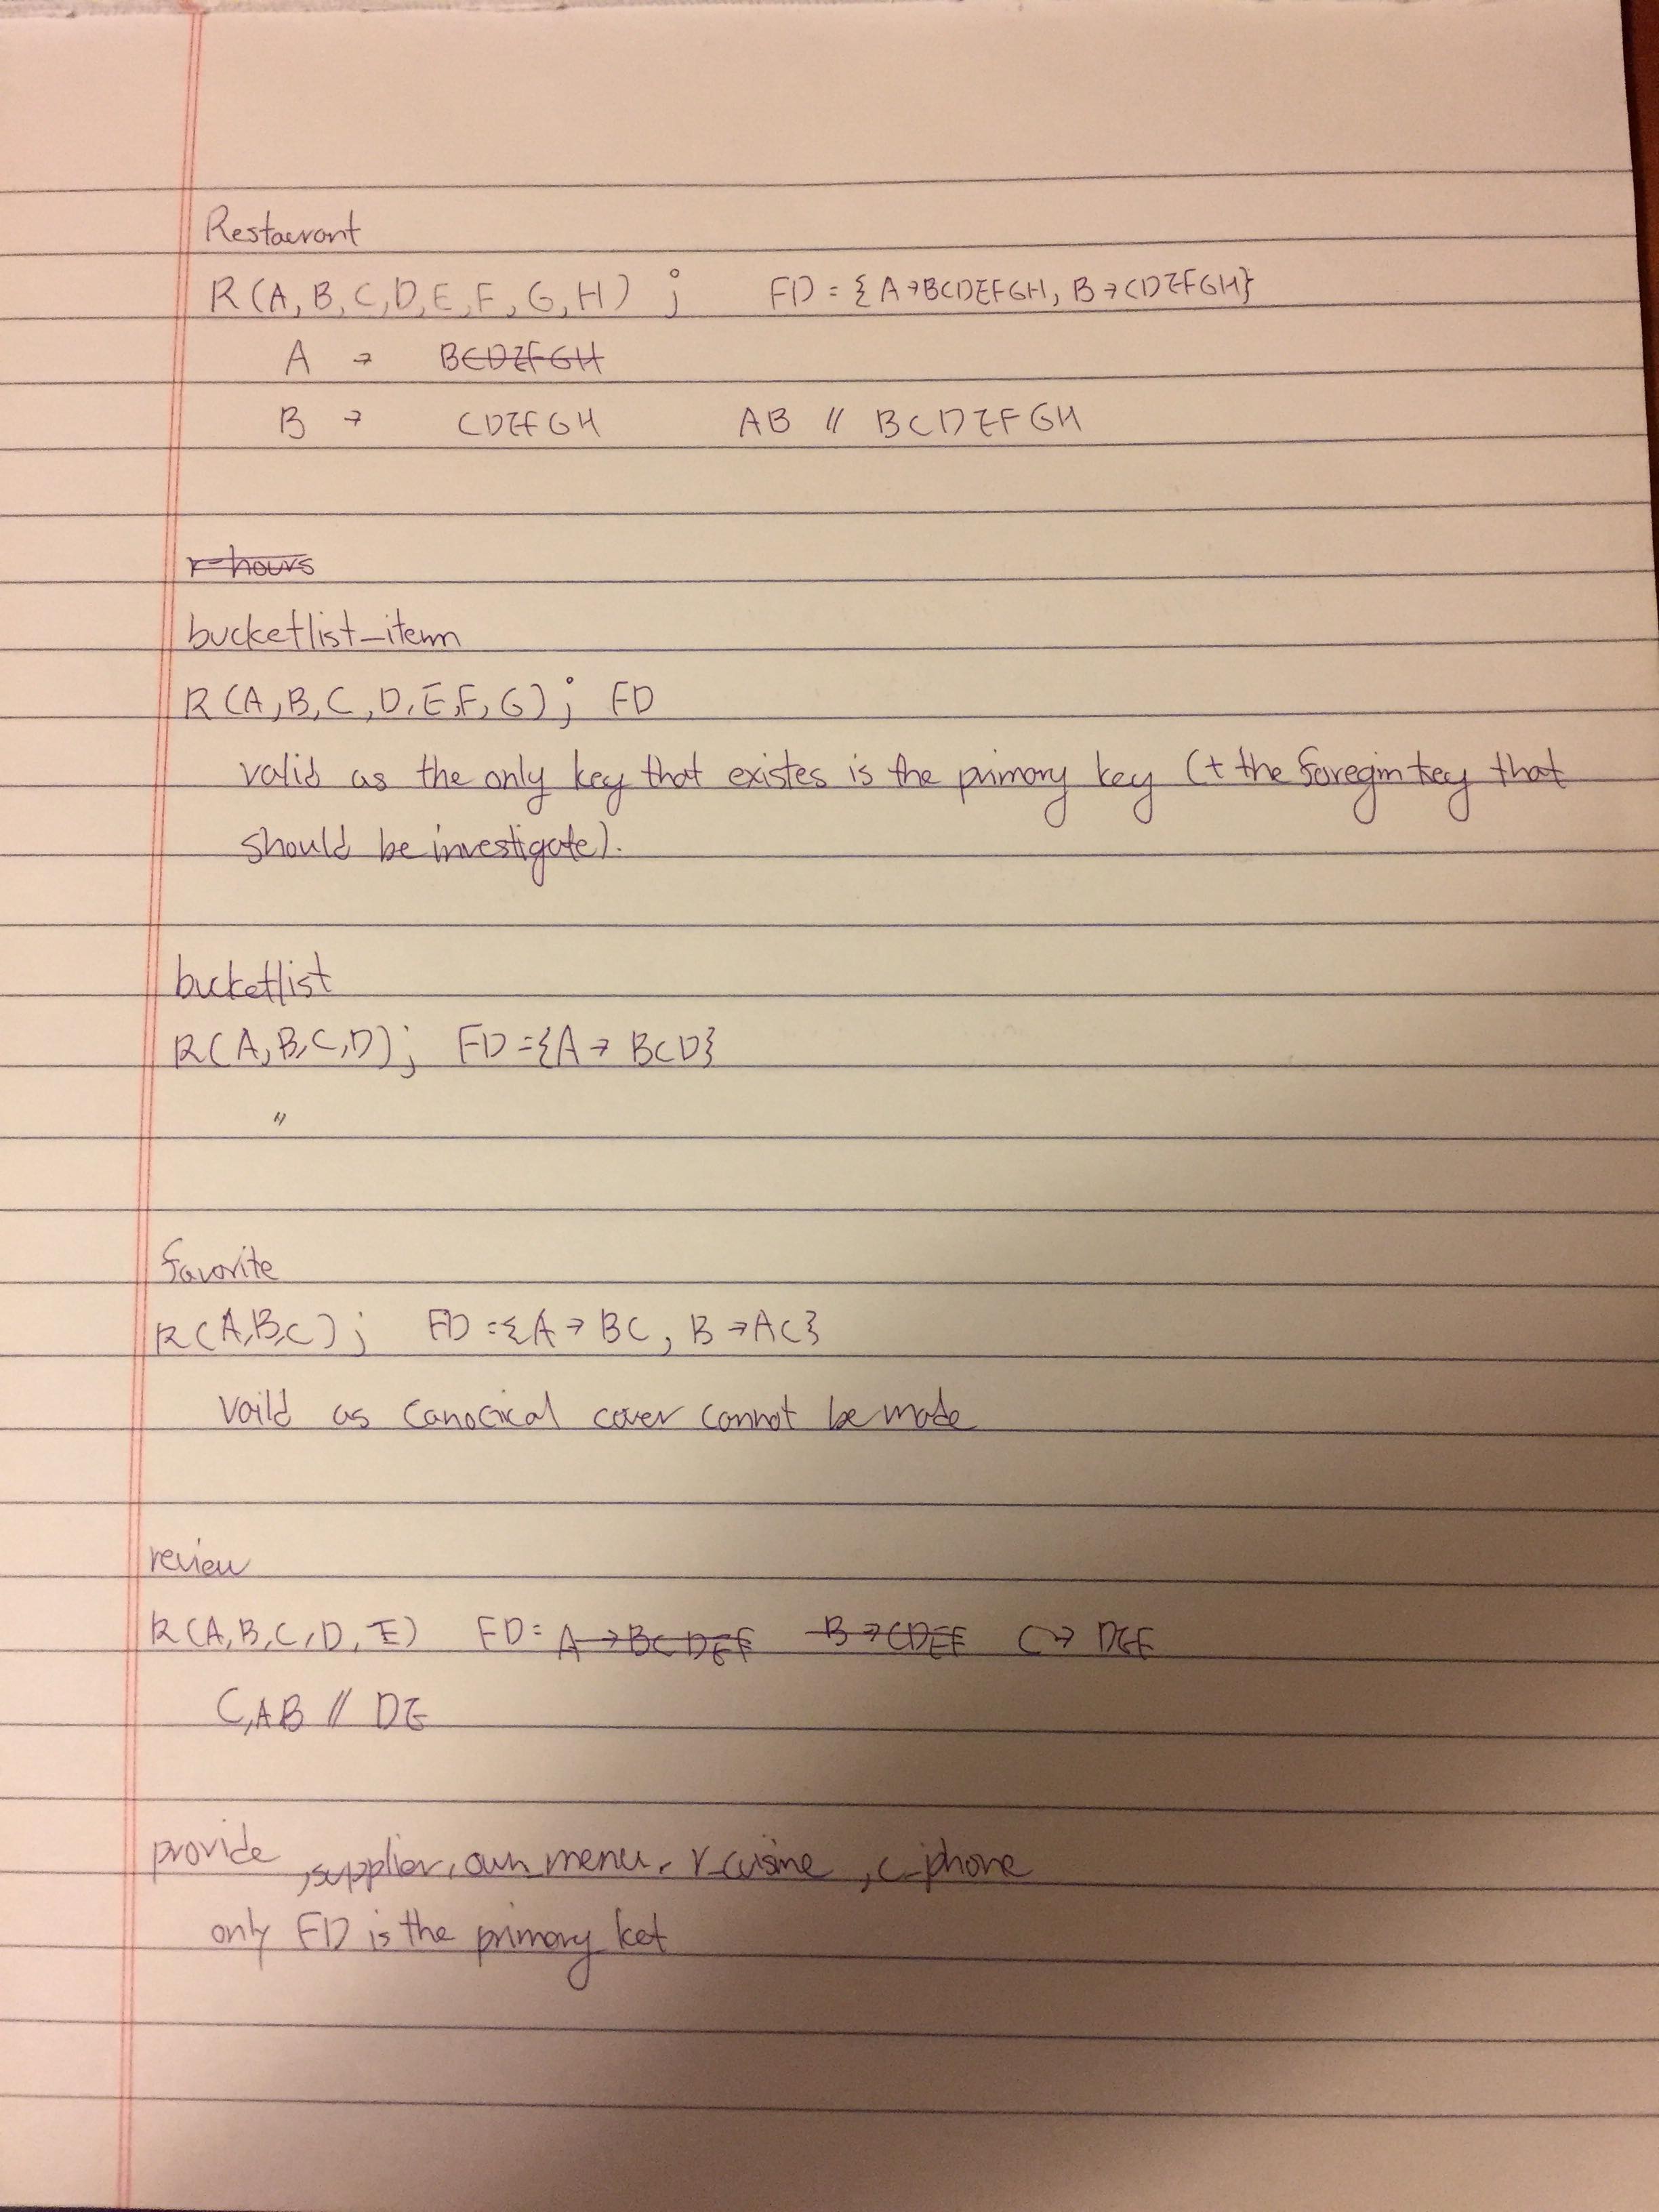 Restaurant
R(A,B,C,D,E,F,G,H) ; FD = {A→BCDEFGH, B→CDEFGH}
A → BCDEFGH
B → CDEFGH AB // BCDEFGH
r-hours
bucketlist_item
R(A,B,C,D,E,F,G); FD
valid as the only key that existes is the primary key (+ the foregin key that
should be investigate).
bucketlist
R(A,B,C,D); FD={A→ BCD}
"
favorite
R(A,B,C); FD={A→ BC, B→AC}
vaild as canocical cover cannot be made
review
R(A,B,C,D,E) FD: A→BCDEF B→CDEF C→ DEF
C,AB // DE
provide, supplier, own_menu, r_cuisine, c_phone
only FD is the primary ket